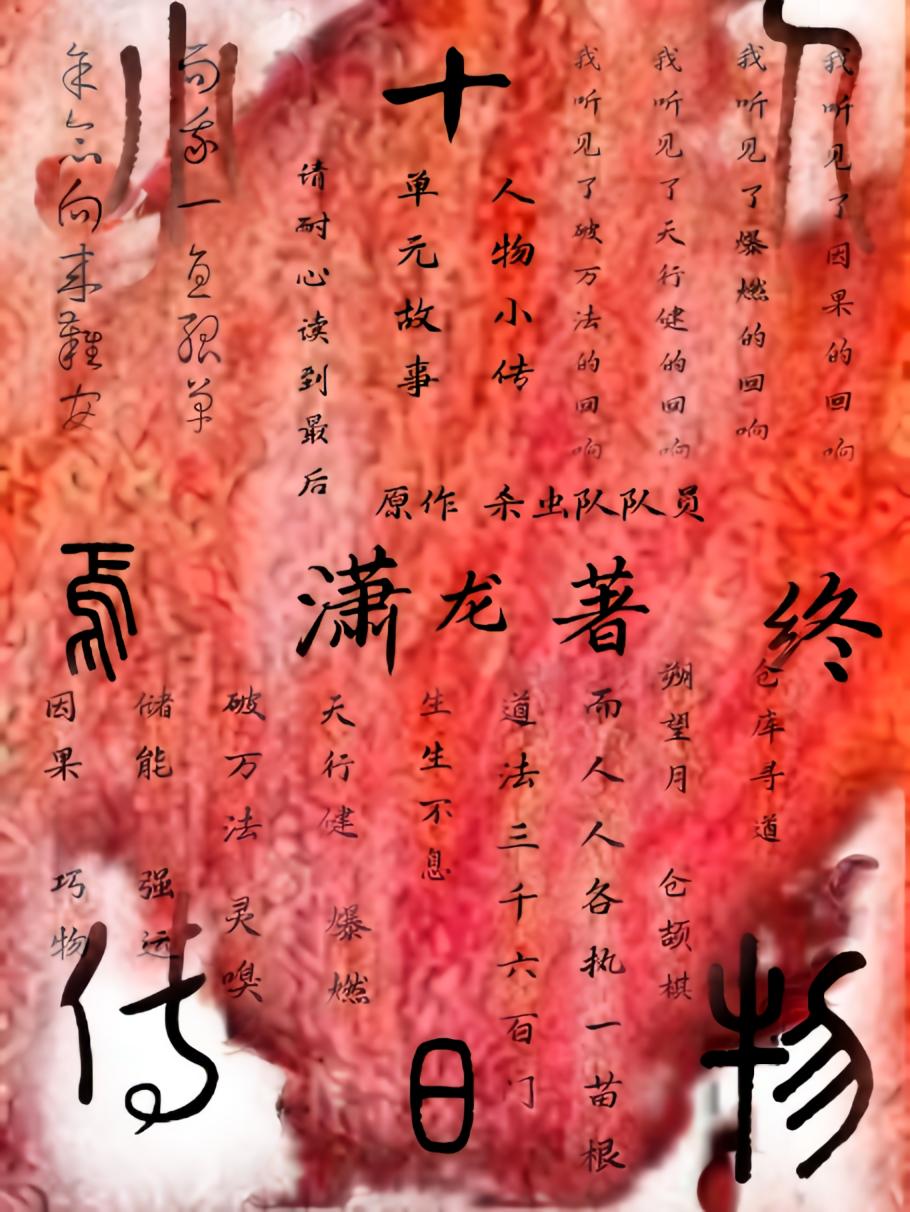 人
我听见了因果的回响
我听见了爆燃的回响
我听见了天行健的回响
我听见了破万法的回响
十
人物小传
单元故事
请耐心读到最后
小
而我一直孤单
向来難安
原作 杀虫队队员
潇龙著
终
焉
仓库寻道
朔望月 仓颉棋
而人人各执一苗根
道法三千六百门
生生不息
天行健 爆燃
破万法 灵嗅
储能 强运
因果 巧物
物
日
传